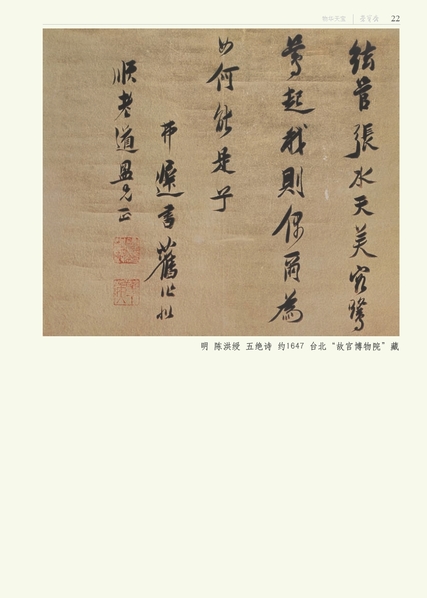 物华天宝
22
絃管張水天美客鶯
鶯起我則偶爾為
如何能是子
弗遲書舊作似
順老道盟兄正
明 陈洪绶 五绝诗 约1647 台北“故宫博物院”藏